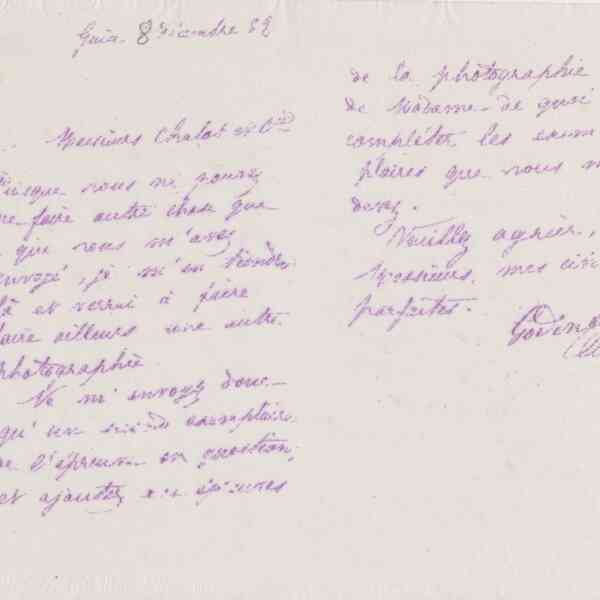 Guise 8 décembre 82
Messieurs Chalot et Cie
Puisque vous ne pouvez
me faire autre chose que
que vous m'avez
envoyé, je m'en tiendrai
là et verrai à faire
faire ailleurs une autre
photographie.
Ne m'envoyez donc
qu'un exemplaire
de l'épreuve en question,
et ajoutez aux épreuves
de la photographie
de Madame de quoi
compléter les exem
plaires que vous m
devez.
Veuillez agréer,
Messieurs, mes civi
parfaites.
Godin